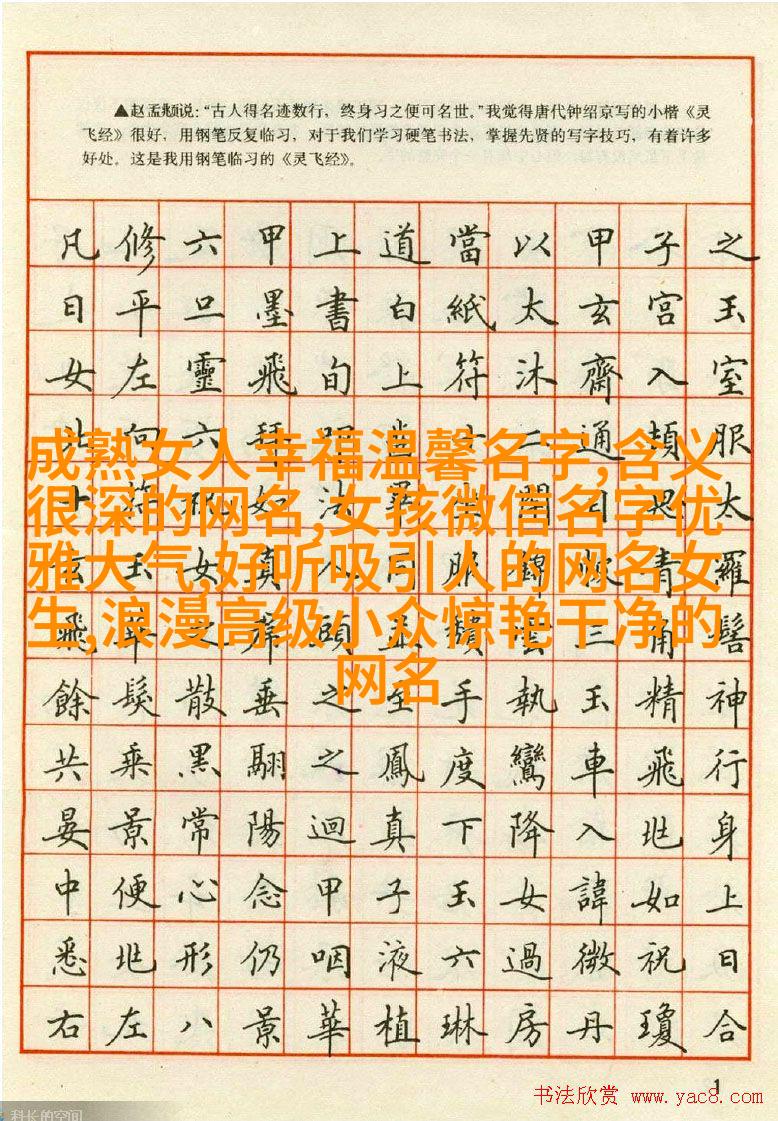 ▲赵孟頫说:“古人得名迹数行，终身习之便可名世。”我觉得唐代钟绍京写的小楷《灵
飞经》很好，用钢笔反复临习，对于我们学习硬笔书法，掌握先贤的写字技巧，有着许多
好处。这是我用钢笔临习的《灵飞经》。
凡修六甲上道當以甲子之
日平旦墨書白紙太玄宮玉
女左靈飛旬上符沐齋入室
北向六拜 通頓服
如法畢 太
玄玉女真人同服錦帔青羅
飛華之 頭 雲三角髻
成熟女人幸福温馨名字,含义
很深的网名,女孩微信名字优
雅大气,好听吸引人的网名女
生,浪漫高级小众惊艳干净的
网名
餘髮散垂之至手執玉精神
共乘黑翮之鳳度鸞車飛行
晏景常陽迴真下降入北身
中便心念甲子玉女諱如上
悉北形仍咽液六過微祝日
右左八景華植琳房丹瓊合
1
书法欣赏 www.yac8.com
科长的空间